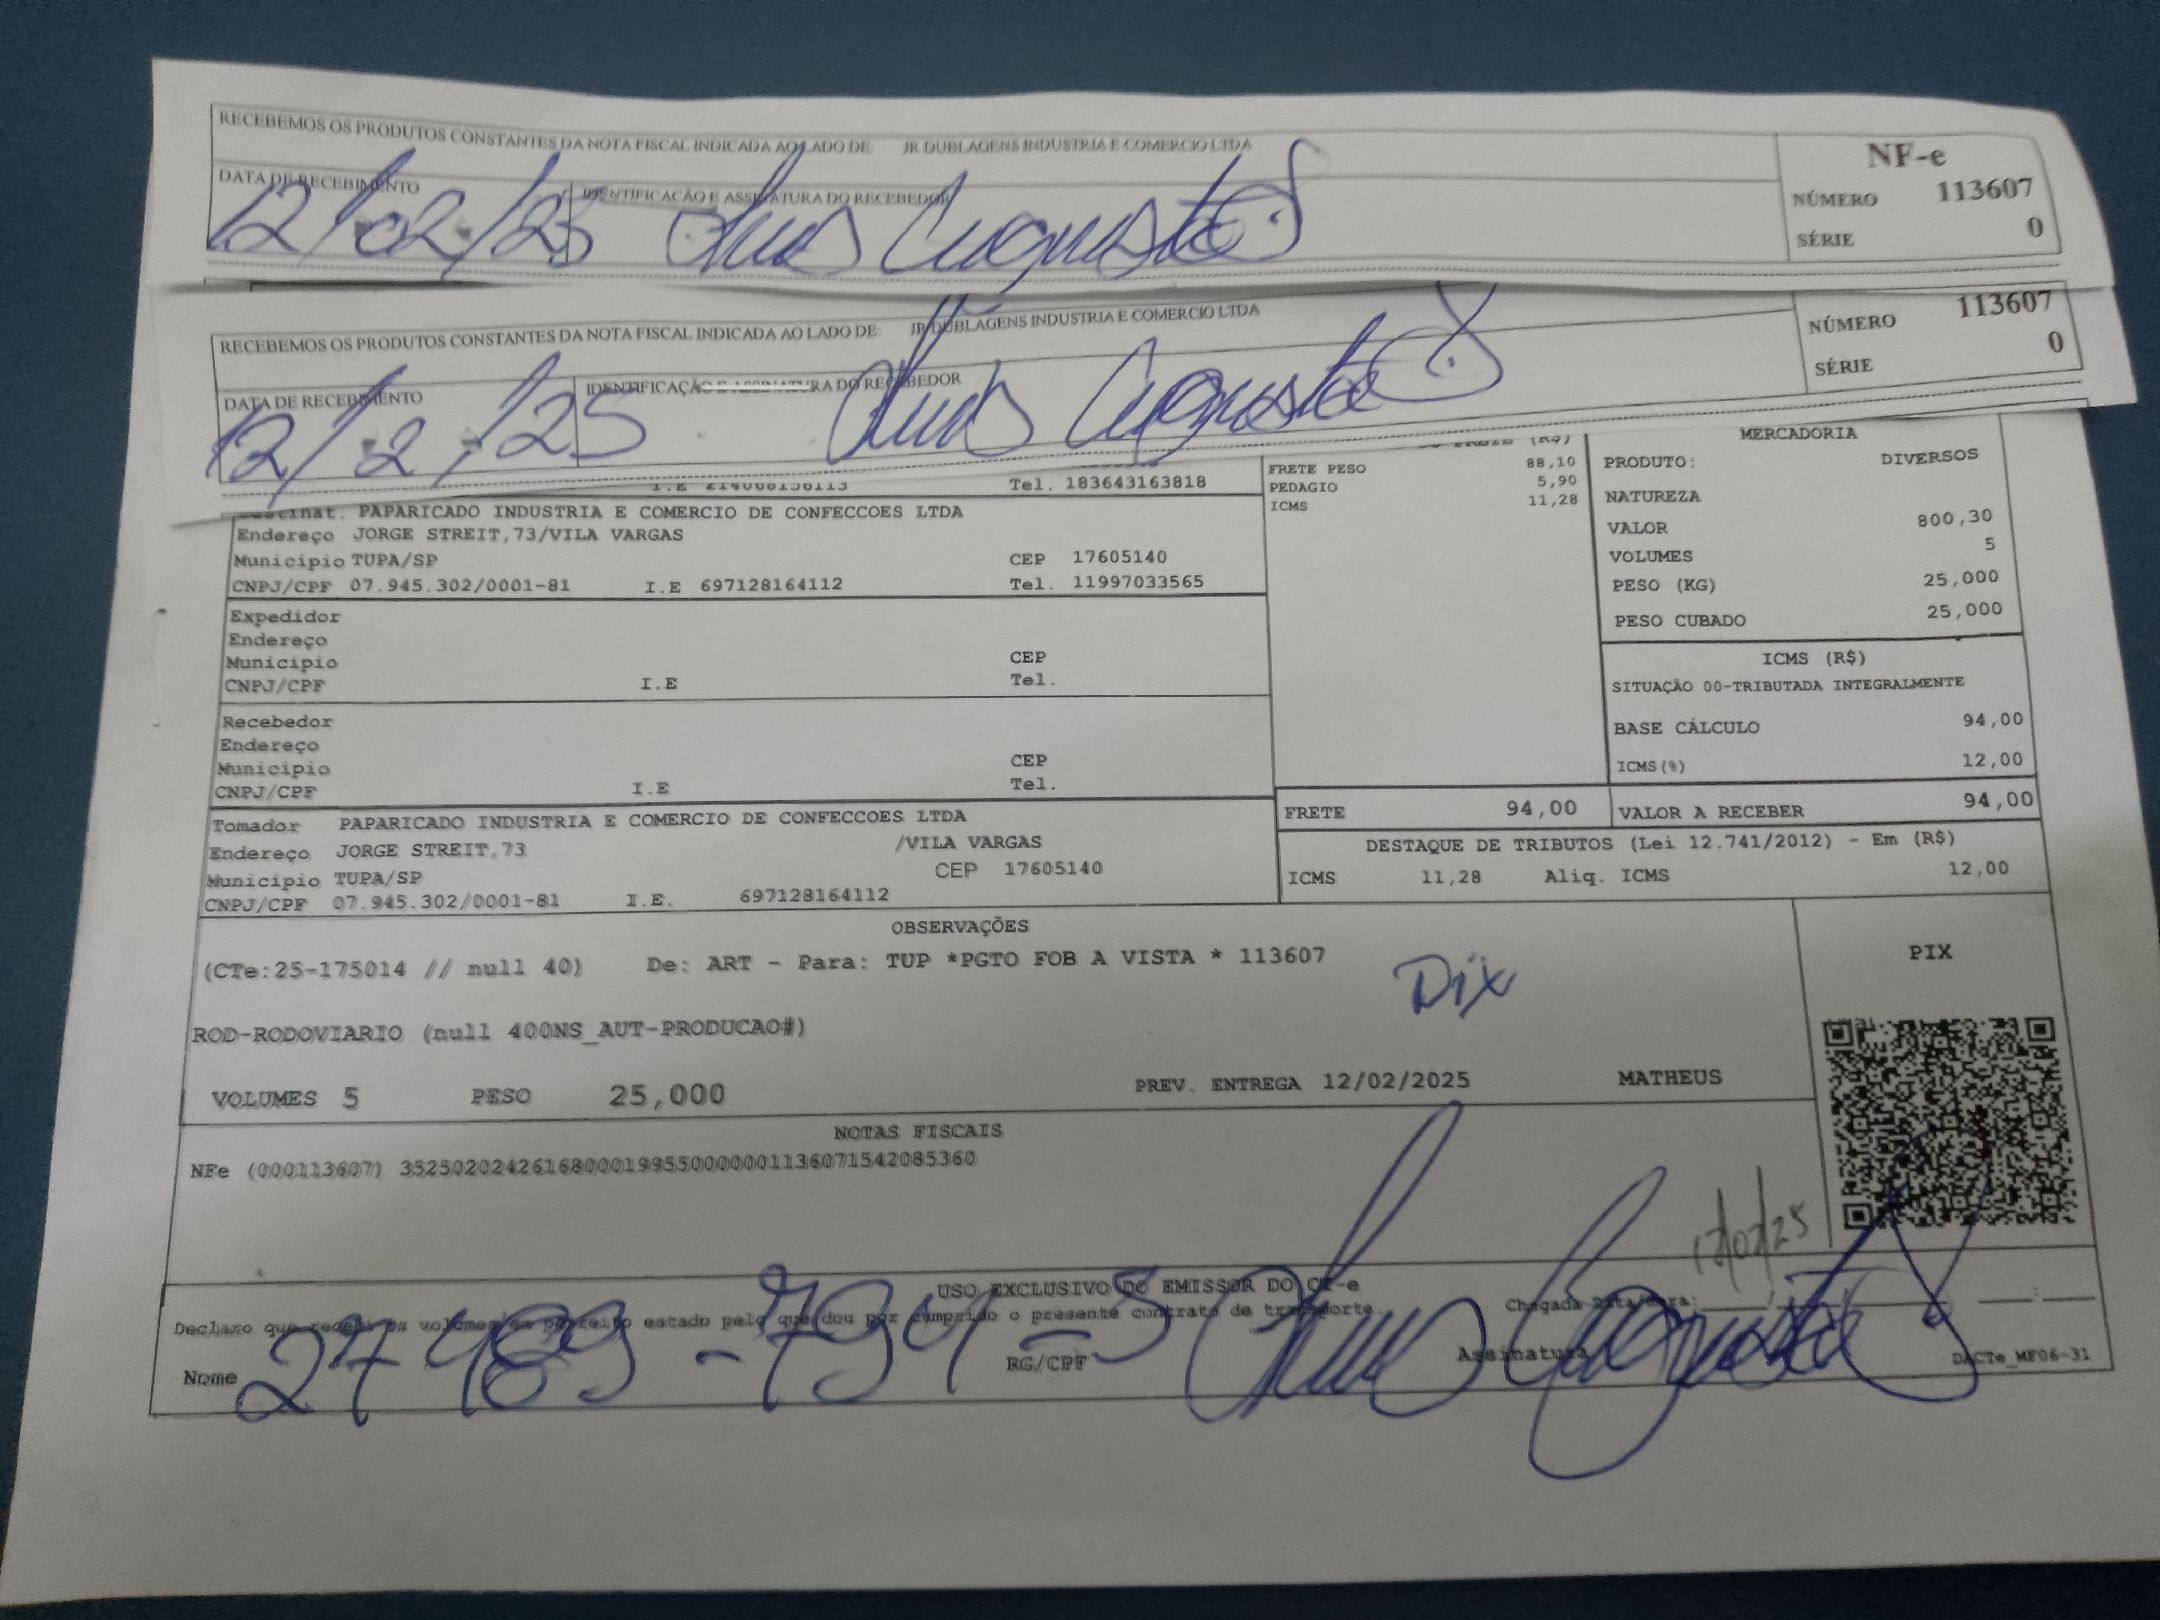 RECEBEMOS OS PRODUTOS CONSTANTES DA NOTA FISCAL INDICADA AO LADO DE JR DUBLAGENS INDUSTRIA E COMERCIO LTDA
NF-e
DATA DE RECEBIMENTO
IDENTIFICAÇÃO E ASSINATURA DO RECEBEDOR
NÚMERO 113607
12/02/25 Luis Augusto
SÉRIE 0
RECEBEMOS OS PRODUTOS CONSTANTES DA NOTA FISCAL INDICADA AO LADO DE JR DUBLAGENS INDUSTRIA E COMERCIO LTDA
NÚMERO 113607
DATA DE RECEBIMENTO
IDENTIFICAÇÃO E ASSINATURA DO RECEBEDOR
SÉRIE 0
12/2/25 Luis Augusto
I.E 214068156113 Tel. 183643163818
Destinat. PAPARICADO INDUSTRIA E COMERCIO DE CONFECCOES LTDA
Endereço JORGE STREIT,73/VILA VARGAS
Municipio TUPA/SP CEP 17605140
CNPJ/CPF 07.945.302/0001-81 I.E 697128164112 Tel. 11997033565
Expedidor
Endereço
Municipio CEP
CNPJ/CPF I.E Tel.
Recebedor
Endereço
Municipio CEP
CNPJ/CPF I.E Tel.
Tomador PAPARICADO INDUSTRIA E COMERCIO DE CONFECCOES LTDA
Endereço JORGE STREIT,73 /VILA VARGAS
Municipio TUPA/SP CEP 17605140
CNPJ/CPF 07.945.302/0001-81 I.E. 697128164112
FRETE (R$)
FRETE PESO 88,10
PEDAGIO 5,90
ICMS 11,28
MERCADORIA
PRODUTO: DIVERSOS
NATUREZA
VALOR 800,30
VOLUMES 5
PESO (KG) 25,000
PESO CUBADO 25,000
ICMS (R$)
SITUAÇÃO 00-TRIBUTADA INTEGRALMENTE
BASE CÁLCULO 94,00
ICMS(%) 12,00
FRETE 94,00 VALOR A RECEBER 94,00
DESTAQUE DE TRIBUTOS (Lei 12.741/2012) - Em (R$)
ICMS 11,28 Aliq. ICMS 12,00
OBSERVAÇÕES
(CTe:25-175014 // null 40) De: ART - Para: TUP *PGTO FOB A VISTA * 113607
Pix
PIX
ROD-RODOVIARIO (null 400NS_AUT-PRODUCAO#)
VOLUMES 5 PESO 25,000 PREV. ENTREGA 12/02/2025 MATHEUS
NOTAS FISCAIS
NFe (000113607) 35250202426168000199550000001136071542085360
12/02/25
USO EXCLUSIVO DO EMISSOR DO CT-e
Declaro que recebi os volumes em perfeito estado pelo que dou por cumprido o presente contrato de transporte.
Chegada Data/Hora:
Nome 27 489-794-5 RG/CPF Assinatura Luis Augusto
DACTe_MF06-31